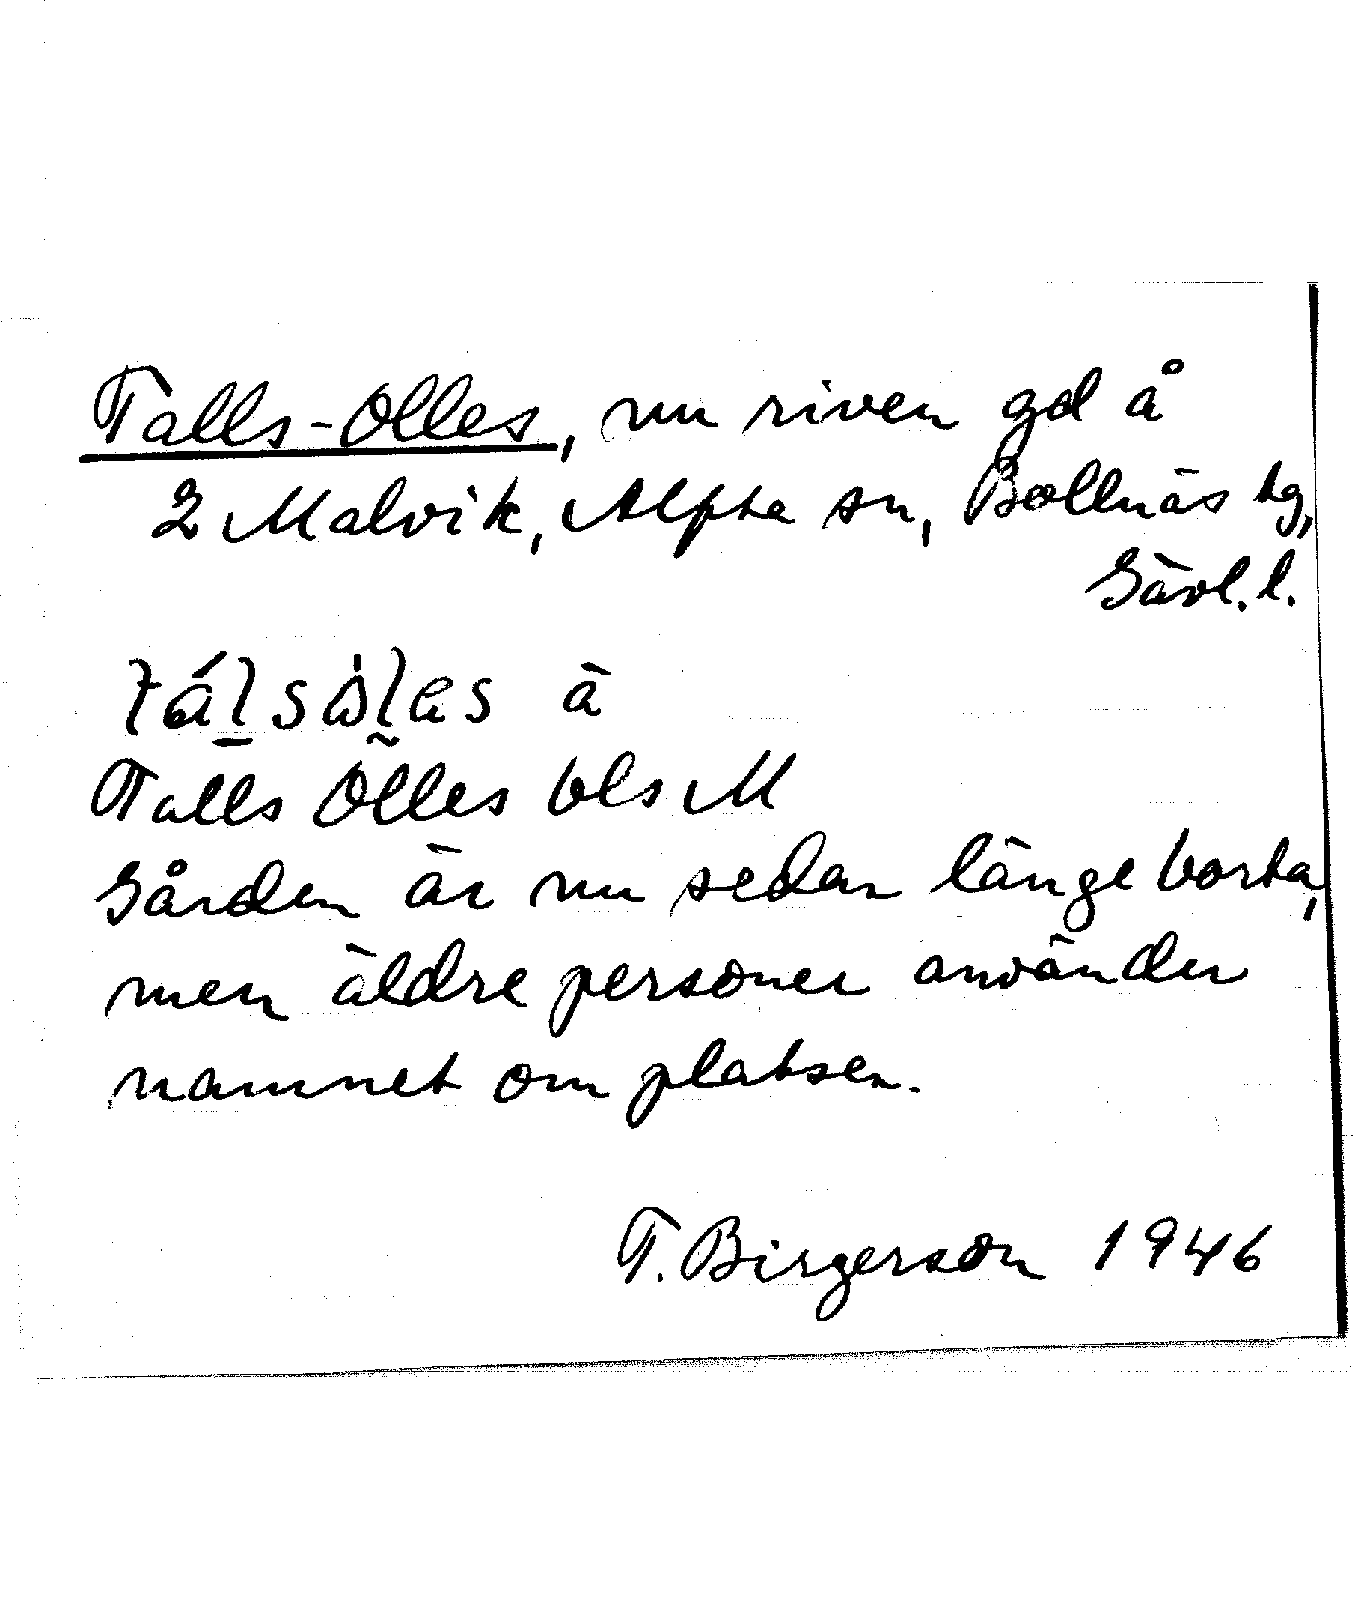 Talls-Olles, nu riven gd å
2 Malvik, Alfta sn, Bollnäs tg,
Gävl. l.
Talls Olles bls M
Gården är nu sedan länge borta,
men äldre personer använder
namnet om platsen.
T. Birgerson 1946